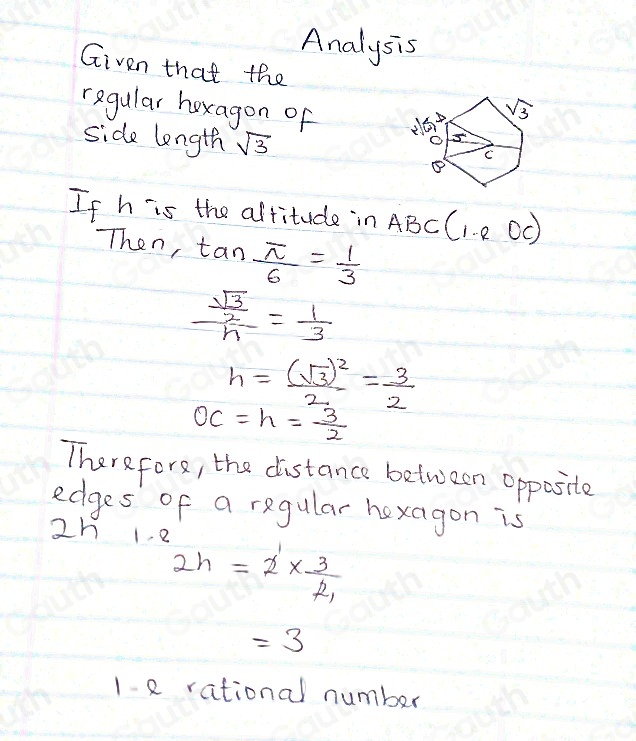 Analysis
Given that the
regular hexagon of
side length √3
√3
A
O
B
C
If h is the altitude in ABC (i.e OC)
Then, tan π/6 = 1/3
(√3/2)/h = 1/3
h = (√3)²/2 = 3/2
OC = h = 3/2
Therefore, the distance between opposite
edges of a regular hexagon is
2h i.e
2h = 2¹ × 3/2₁
= 3
i-e rational number